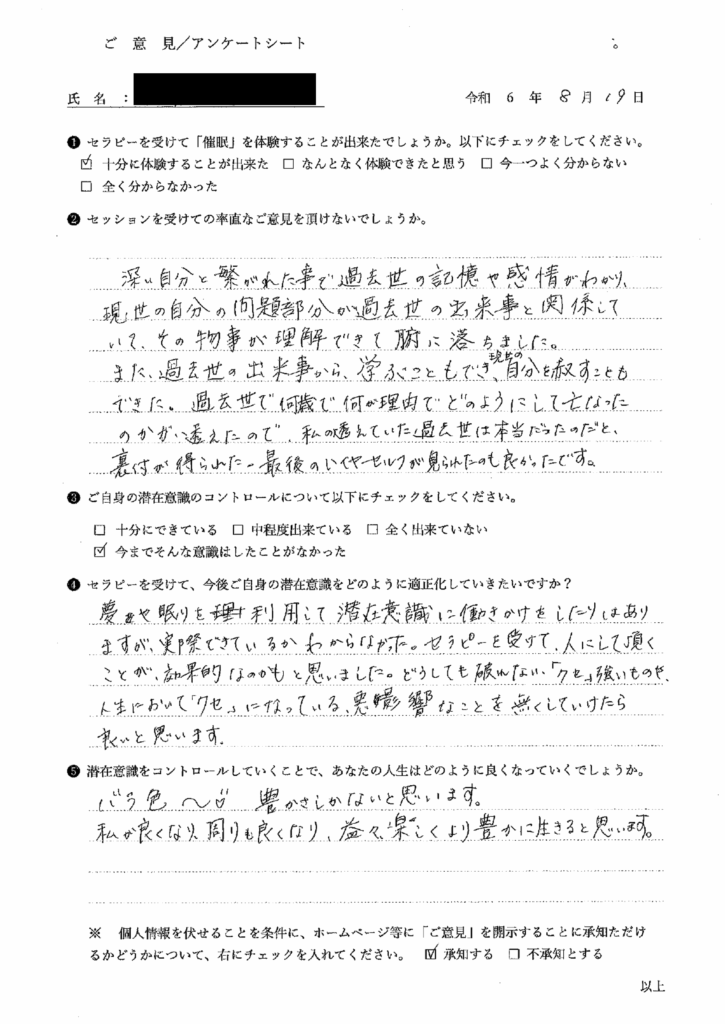 ご 意 見／アンケートシート
氏 名 ：
令和 6 年 8 月 19 日
❶ セラピーを受けて「催眠」を体験することが出来たでしょうか。以下にチェックをしてください。
☑ 十分に体験することが出来た □ なんとなく体験できたと思う □ 今一つよく分からない
□ 全く分からなかった
❷ セッションを受けての率直なご意見を頂けないでしょうか。
深い自分と繋がれた事で過去世の記憶や感情がわかり、
現世の自分の問題部分が過去世の出来事と関係して
いて、その物事が理解できて腑に落ちました。
また、過去世の出来事から、学ぶこともでき、現世の自分を赦すことも
できた。過去世で何歳で何が理由でどのようにして亡なった
のかが、透えたので、私の透えていた過去世は本当だったのだと、
裏付が得られた。最後のハイヤーセルフが見られたのも良かったです。
❸ ご自身の潜在意識のコントロールについて以下にチェックをしてください。
□ 十分にできている □ 中程度出来ている □ 全く出来ていない
☑ 今までそんな意識はしたことがなかった
❹ セラピーを受けて、今後ご自身の潜在意識をどのように適正化していきたいですか？
夢や眠りを利用して潜在意識に働きかけをしたりはあり
ますが、実際できているかわからなかった。セラピーを受けて、人にして頂く
ことが、効果的なのかもと思いました。どうしても破れない、「クセ」強いものや、
人生において「クセ」になっている、悪影響なことを無くしていけたら
良いと思います。
❺ 潜在意識をコントロールしていくことで、あなたの人生はどのように良くなっていくでしょうか。
バラ色〜 豊かさしかないと思います。
私が良くなり、周りも良くなり、益々、楽しくより豊かに生きると思います。
※ 個人情報を伏せることを条件に、ホームページ等に「ご意見」を開示することに承知ただけ
るかどうかについて、右にチェックを入れてください。 ☑ 承知する □ 不承知とする
以上